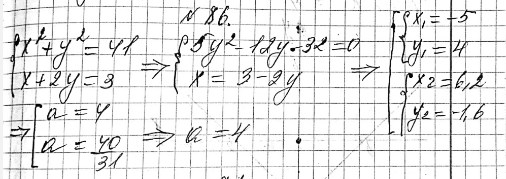 № 86.
{x²+y²=41
x+2y=3 ⇒ {5y²-12y-32=0
x=3-2y ⇒ [{x₁=-5
y₁=4
{x₂=6,2
y₂=-1,6
⇒ [a=4
a=40/31 ⇒ a=4